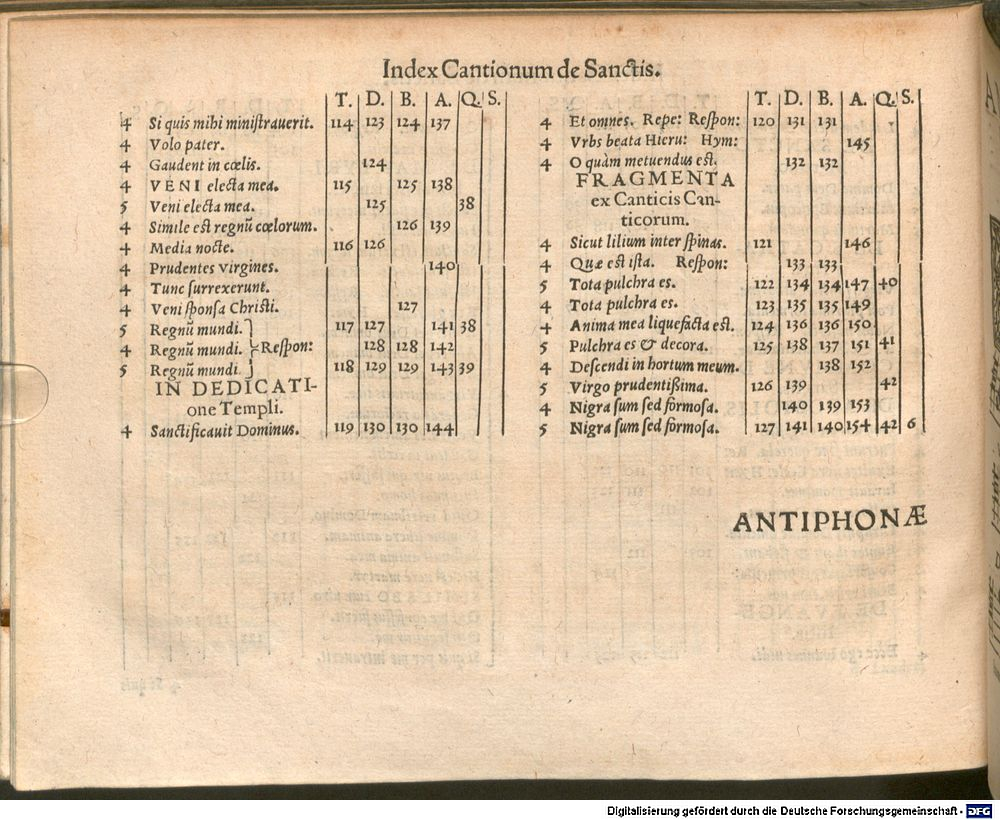 Index Cantionum de Sanctis.
T. D. B. A. Q. S.
4 Si quis mihi ministrauerit. 114 123 124 137
4 Volo pater.
4 Gaudent in cœlis. 124
4 VENI electa mea. 115 125 138
5 Veni electa mea. 125 38
4 Simile est regnū cœlorum. 126 139
4 Media nocte. 116 126
4 Prudentes virgines. 140
4 Tunc surrexerunt.
4 Veni sponsa Christi. 127
5 Regnū mundi. 117 127 141 38
4 Regnū mundi. Respon: 128 128 142
5 Regnū mundi. 118 129 129 143 39
IN DEDICATI-
one Templi.
4 Sanctificauit Dominus. 119 130 130 144
T. D. B. A. Q. S.
4 Et omnes. Repe: Respon: 120 131 131
4 Vrbs beata Hieru: Hym: 145
4 O quàm metuendus est. 132 132
FRAGMENTA
ex Canticis Can-
ticorum.
4 Sicut lilium inter spinas. 121 146
4 Quæ est ista. Respon: 133 133
5 Tota pulchra es. 122 134 134 147 40
4 Tota pulchra es. 123 135 135 149
4 Anima mea liquefacta est. 124 136 136 150
5 Pulchra es & decora. 125 138 137 151 41
4 Descendi in hortum meum. 138 152
5 Virgo prudentißima. 126 139 42
4 Nigra sum sed formosa. 140 139 153
5 Nigra sum sed formosa. 127 141 140 154 42 6
ANTIPHONÆ
Digitalisierung gefördert durch die Deutsche Forschungsgemeinschaft - DFG